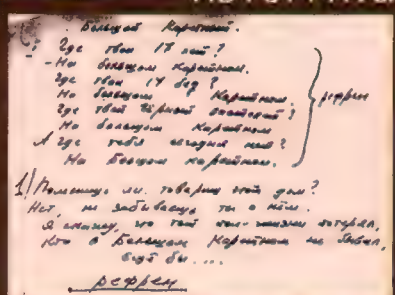 Большой Каретный.
Где твои 17 лет?
- На большом Каретном.
Где твои 17 бед?
На большом Каретном.
Где твой чёрный пистолет?
На большом Каретном
А где тебя сегодня нет?
На большом каретном.
рефрен
1) Помнишь ли, товарищ этот дом?
Нет, не забываешь ты о нём.
Я скажу, что тот пол-жизни потерял,
Кто в Большом Каретном не бывал,
ещё бы ....
рефрен